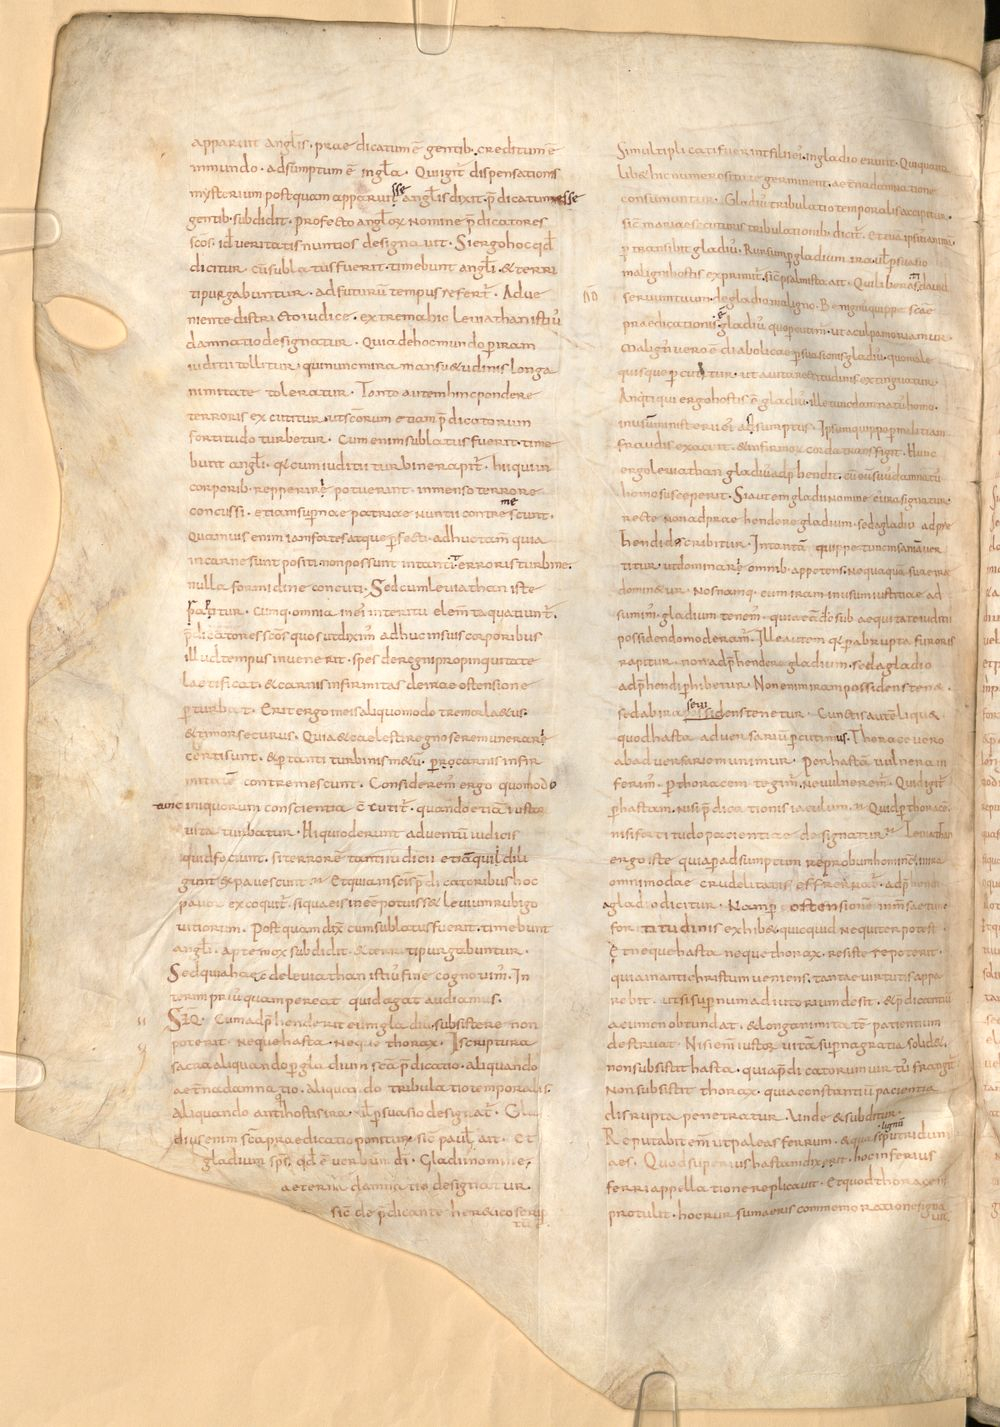 apparuit angl̄is · prae dicatum ē gentib· creditum ē
inmundo · adsūmptum ē ingl̄a · Qui igit̄ dispensationis
mysterium postquam apparuisse angl̄is dixit · p̄dicatum esse
gentib· subdidit · profecto angl̄ox nomine p̄dicatores
sc̄os · id̄ veritatis nuntios designavit · Si ergo hoc qd̄
dicitur cū sublatus fuerit · timebunt angl̄i · & terri
ti purgabuntur · ad futurū tempus refert̄ · Adve
niente districto iudice · extrema hic leviathan istiu᷒
damnatio designatur · Quia de hoc mundo p iram
iuditii tollitur · qui nunc mira mansu&udinis longa
nimitate toleratur · Tanto autem hinc pondere
terroris excutitur · ut sc̄orum etiam p̄dicatorum
fortitudo turbetur · Cum enim sublatus fuerit · time
bunt angl̄i · q̄ cum iuditii turbine rapit̄ · hi qui in
corporib· repperire potuerunt · inmenso terrore
concussi · etiam sup̄nae patriae nuntii contremescunt ·
Quamvis enim iam fortes atque pfecti · adhuc tam̄ quia
in carne sunt positi · non possunt in tanti terroris turbine ·
nulla formidine concuti · Sed cum leviathan iste
rapitur · cunq· omnia in ei᷒ interitu elem̄ta quatiunt̄ ·
p̄dicatores sc̄os quos ut dixim᷒ adhuc in suis corporibus
illud tempus invenerit · spes de regni propinquitate
laetificat · & carnis infirmitas de irae ostensione
pturbat · Erit ergo in eis aliquo modo tremor la&us ·
& timor securus · Quia & caelesti regno se remunerari
certi sunt · & p tanti turbinis m&ū · p carnis infir
mitatē contremescunt · Considerem᷒ ergo quomodo
tunc iniquorum conscientia cōcutit̄ · quando etiā iustor
vita turbatur · Hi qui oderunt adventū iudicis
quid faciunt · si terrorē tanti iudicii etiā qui dili
gunt & pavescunt · Et quia in sc̄is p̄dicatoribus hoc
pavor excoquit̄ · siqua eis inēe potuiss& levium rubigo
vitiorum · Postquam dix̄ cum sublatus fuerit · timebunt
angl̄i · apte mox subdidit · & terr ti purgabuntur ·
Sed quia haec de leviathan istiu᷒ fine cognovim᷒ · In
terim priu᷒quam pereat quid agat audiamus ·
SEQ · Cum adp̄henderit eum gladiu᷒ · subsistere non
poterit · neque hasta · neque thorax · In scriptura
sacra aliquando p gladium sc̄a p̄dicatio · aliquando
aet̄na damnatio · aliquando tribulatio temporalis ·
Aliquando antiq hostis ira · ul̄ psuasio designat̄ · Gla
dius enim sc̄a praedicatio ponitur sic̄ paul᷒ ait · Et
gladium sp̄s · qd̄ ē verbum dī · Gladii nomine ·
aeterna damnatio designatur ·
sic̄ de p̄dicante heretico scrip
tū ē ·
Si multiplicati fuerint filii ei᷒ · in gladio erunt · Quia quam
lib& hic numerositate germinent · aet̄na damnatione
consumuntur · Gladiu᷒ tribulatio temporalis accipitur ·
sic̄ mariae secuturis tribulationib· dicit̄ · Et tua ipsi᷒ animā
p transibit gladiu᷒ · Rursum p gladium ira ul̄ psuasio
maligni hostis exprimit̄ · sic̄ psalmista ait · Qui liberasti david
servum tuum · de gladio maligno · Benignu᷒ quippe sc̄ae
praedicationis ē gladiu᷒ · quo pcutim᷒ · ut a culpa moriamur ·
Malign᷒ vero ē diabolicae psuasionis gladiu᷒ · quo male
quisque pcutitur · ut a vitae rectitudinis extinguatur ·
Antiqui ergo hostis ē gladiu᷒ · ille tunc damnat᷒ homo ·
in usū ministerii ei᷒ adsumptus · Ipsum quippe p malitiam
fraudis exacuit · & infirmorum corda transfigit · Hunc
ergo leviathan gladiu᷒ adp̄hendit · cū eū suu᷒ damnat᷒
homo susceperit · Si autem gladii nomine ei᷒ ira signatur ·
recte non adprae hendere gladium · sed a gladio adpre
hendi describitur · In tantā quippe tunc insaniā ver
titur · ut dominari omnib· appetens · nequaquā suae irae
dominetur · Nos namq· cum iram in usum iustitiae ad
sumim᷒ · gladium tenem᷒ · quia eā dō sub aequitate iuditii
possidendo moderam᷒ · Ille autem q̄ p abrupta furoris
rapitur · non adp̄hendere gladium · sed a gladio
adp̄hendi phibetur · Non enim iram possidens ten& ·
sed ab ira possidens tenetur · Cunctis autē liqu& ·
quod hasta adversariū pcutimus · Thorace vero
ab adversario munimur · Per hastā vulnera in
ferim᷒ · p thoracem tegim᷒ · ne vulnerem᷒ · Quid igit̄
p hastam · nisi p̄dicationis iaculum · Quid p thorace ·
nisi fortitudo pacientiae designatur · Leviathan
ergo iste quia p adsumptum reprobum hominē · in ira
omnimodae crudelitatis effrenat̄ · adp̄hendi
a gladio dicitur · Nam p ostensionē inm̄sae tunc
fortitudinis exhib& · quicquid nequiter potest ·
Et neque hasta neque thorax · resistere poterit ·
quia in antichristum veniens · tantae virtutis appa
rebit · ut si sup̄num adiutorium desit · & p̄dicantiū
acumen obtundat · & longanimitatē patientium
destruat · Nisi em̄ iustorum vitā sup̄na gratia solid& ·
non subsistit hasta · quia p̄dicatorum virtū frangit ·
Non subsistit thorax · quia constantiū pacientia
disrupta penetratur · Unde & subditur ·
Reputabit em̄ ut paleas ferrum · & quasi lignū putridum
aes · Quod superius hastam dixerit · hoc inferius
ferri appellatione replicavit · Et quod thorace
protulit · hoc rursum aeris commemoratione signa
vit ·